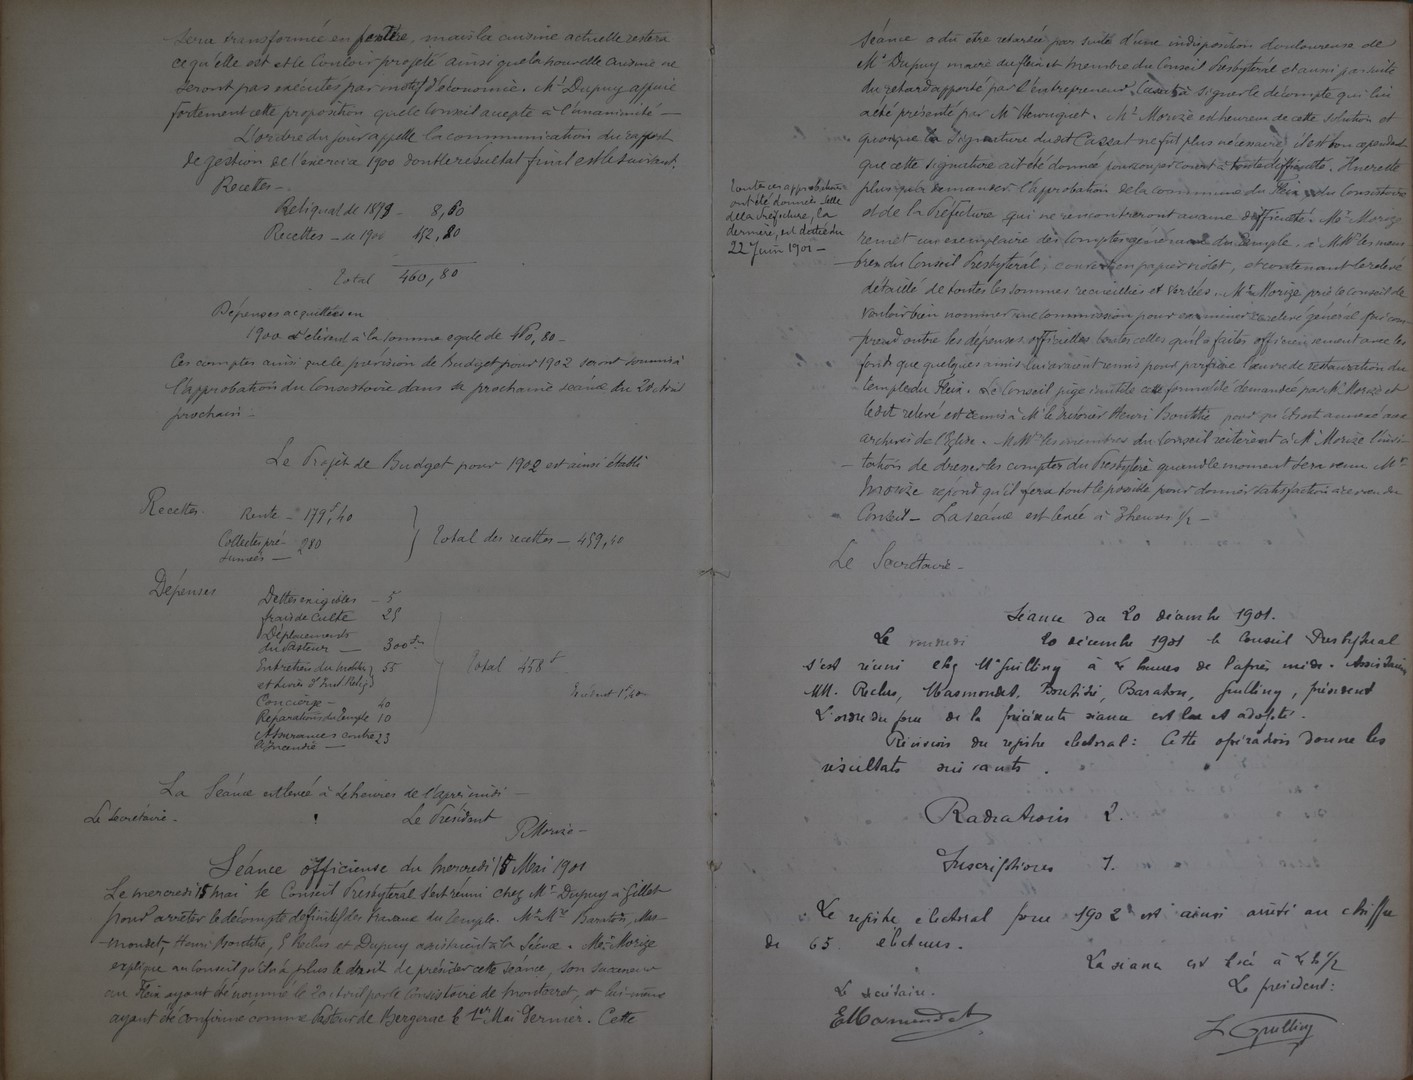 sera transformée en fenêtre, mais la cuisine actuelle restera
ce qu'elle est et le couloir projeté ainsi que la nouvelle cuisine ne
seront pas exécutés par motif d'économie. Mr Dupuy appuie
fortement cette proposition que le Conseil accepte à l'unanimité —
L'ordre du jour appelle la communication du rapport
de gestion de l'exercice 1900 dont le résultat final est le suivant
Recettes —
Reliquat de 1899 — 8,60
Recettes — de 1900 452,20
Total 460,80
Dépenses acquittées en
1900 s'élèvent à la somme égale de 460,80 —
Ces comptes ainsi que la prévision de budget pour 1902 seront soumis à
l'approbation du Consistoire dans sa prochaine séance du 20
prochain —
Le Projet de Budget pour 1902 est ainsi établi
Recettes — Rente — 179f,40
Collectes pré-
sumées — 280
Total des recettes — 459,40
Dépenses
Dettes exigibles — 5
frais de culte 25
Déplacements
du Pasteur — 300
Entretien du mobilier 55
et livres d'Inst. Relig.
Concierge — 40
Réparations du Temple 10
Assurances contre 23
l'Incendie —
Total 458f
Excédent 1f,40
La Séance est levée à 4 heures de l'après midi —
Le Secrétaire — Le Président
Morize —
Séance officieuse du mercredi 15 Mai 1901
Le mercredi 15 mai le Conseil Presbytéral s'est réuni chez Mr Dupuy à Gillet
pour arrêter le décompte définitif des travaux du Temple. MM. Baraton, Mas-
mondet, Henri Bouthié, E Reclus et Dupuy assistaient à la Séance. Mr Morize
explique au Conseil qu'il n'a plus le droit de présider cette séance, son successeur
au Fleix ayant été nommé le par le Consistoire de Montcaret, et lui-même
ayant été confirmé comme Pasteur de Bergerac le 1er Mai dernier. Cette
séance a dû être retardée par suite d'une indisposition douloureuse de
Mr Dupuy maire du Fleix et membre du Conseil Presbytéral et aussi par suite
du retard apporté par l'entrepreneur Cassat à signer le décompte qui lui
a été présenté par Mr Henriquet. Mr Morize est heureux de cette solution et
quoique la signature du dit Cassat ne fut plus nécessaire il est bon cependant
que cette signature ait été donnée pour couper court à toute difficulté. Il ne reste
plus qu'à demander l'approbation de la commune du Fleix, du Consistoire
et de la Préfecture qui ne rencontreront aucune difficulté. Mr Morize
remet un exemplaire des Comptes généraux du Temple, à MM. les mem-
bres du Conseil Presbytéral, couvert en papier violet, et contenant le relevé
détaillé de toutes les sommes recueillies et versées. Mr Morize prie le Conseil de
vouloir bien nommer une Commission pour examiner ce relevé général qui com-
prend outre les dépenses officielles toutes celles qu'il a faites officieusement avec les
fonds que quelques amis lui avaient remis pour parfaire l'œuvre de restauration du
temple du Fleix. Le Conseil juge inutile cette formalité demandée par Mr Morize et
le dit relevé est remis à Mr le Trésorier Henri Bouthié pour qu'il soit annexé aux
archives de l'Eglise. MM. les membres du Conseil réitèrent à Mr Morize l'invi-
tation de dresser les comptes du Presbytère quand le moment sera venu. Mr
Morize répond qu'il fera tout le possible pour donner satisfaction à ce vœu du
Conseil — La séance est levée à 3 heures 1/2 —
Le Secrétaire —
Toutes ces approbations
ont été données celle
de la Préfecture, la
dernière, est datée du
22 Juin 1901 —
Séance du 20 décembre 1901.
Le vendredi 20 décembre 1901 le Conseil Presbytéral
s'est réuni chez Mr Guilling à 2 heures de l'après midi. Assistaient
MM. Reclus, Masmondet, Bouthié, Baraton, Guilling, président
L'ordre du jour de la précédente séance est lu et adopté.
Révision du registre électoral : Cette opération donne les
résultats suivants.
Radiations 2.
Inscriptions 1.
Le registre électoral pour 1902 est ainsi arrêté au chiffre
de 65 électeurs.
La séance est levée à 2 h 1/2
Le président :
Le secrétaire.
E Masmondet
L Guilling